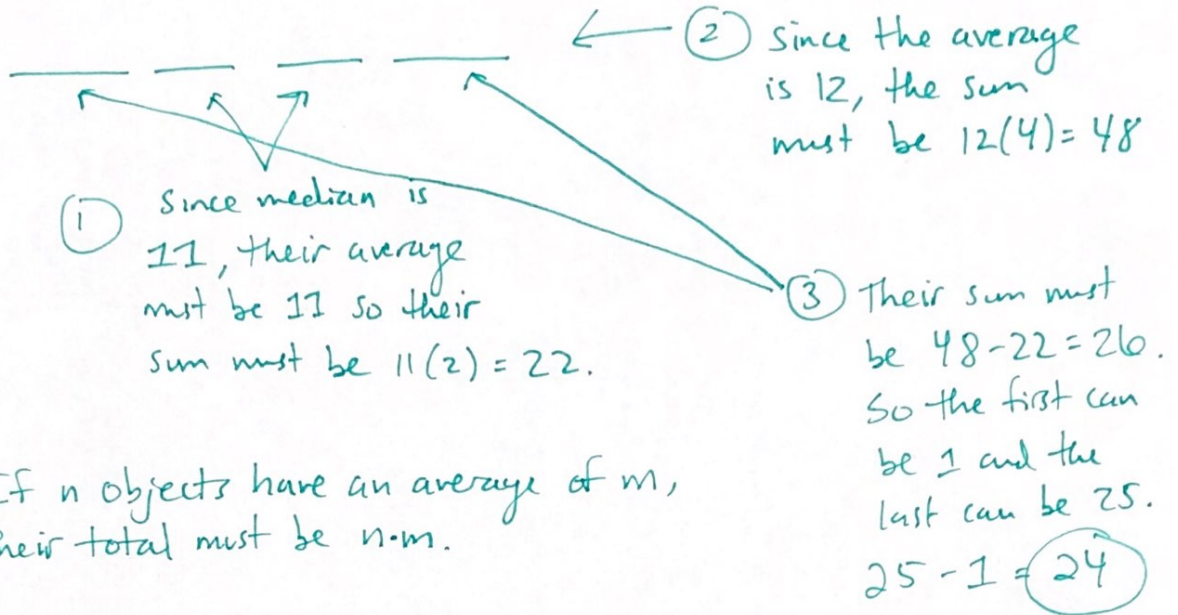 ② Since the average
is 12, the sum
must be 12(4) = 48
① Since median is
11, their average
must be 11 so their
sum must be 11(2) = 22.
③ Their sum must
be 48-22 = 26.
So the first can
be 1 and the
last can be 25.
25 - 1 = 24
If n objects have an average of m,
heir total must be n·m.